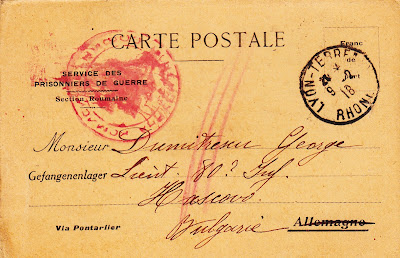 CARTE POSTALE
Franc
de
Port
SERVICE DES
PRISONNIERS DE GUERRE
Section Roumaine
LYON-TERREAUX
9-2
18
RHONE
Monsieur Dumitrescu George
Gefangenenlager Lieut. 80? Inf.
Hascovo
Via Pontarlier
Vulgarie Allemagne